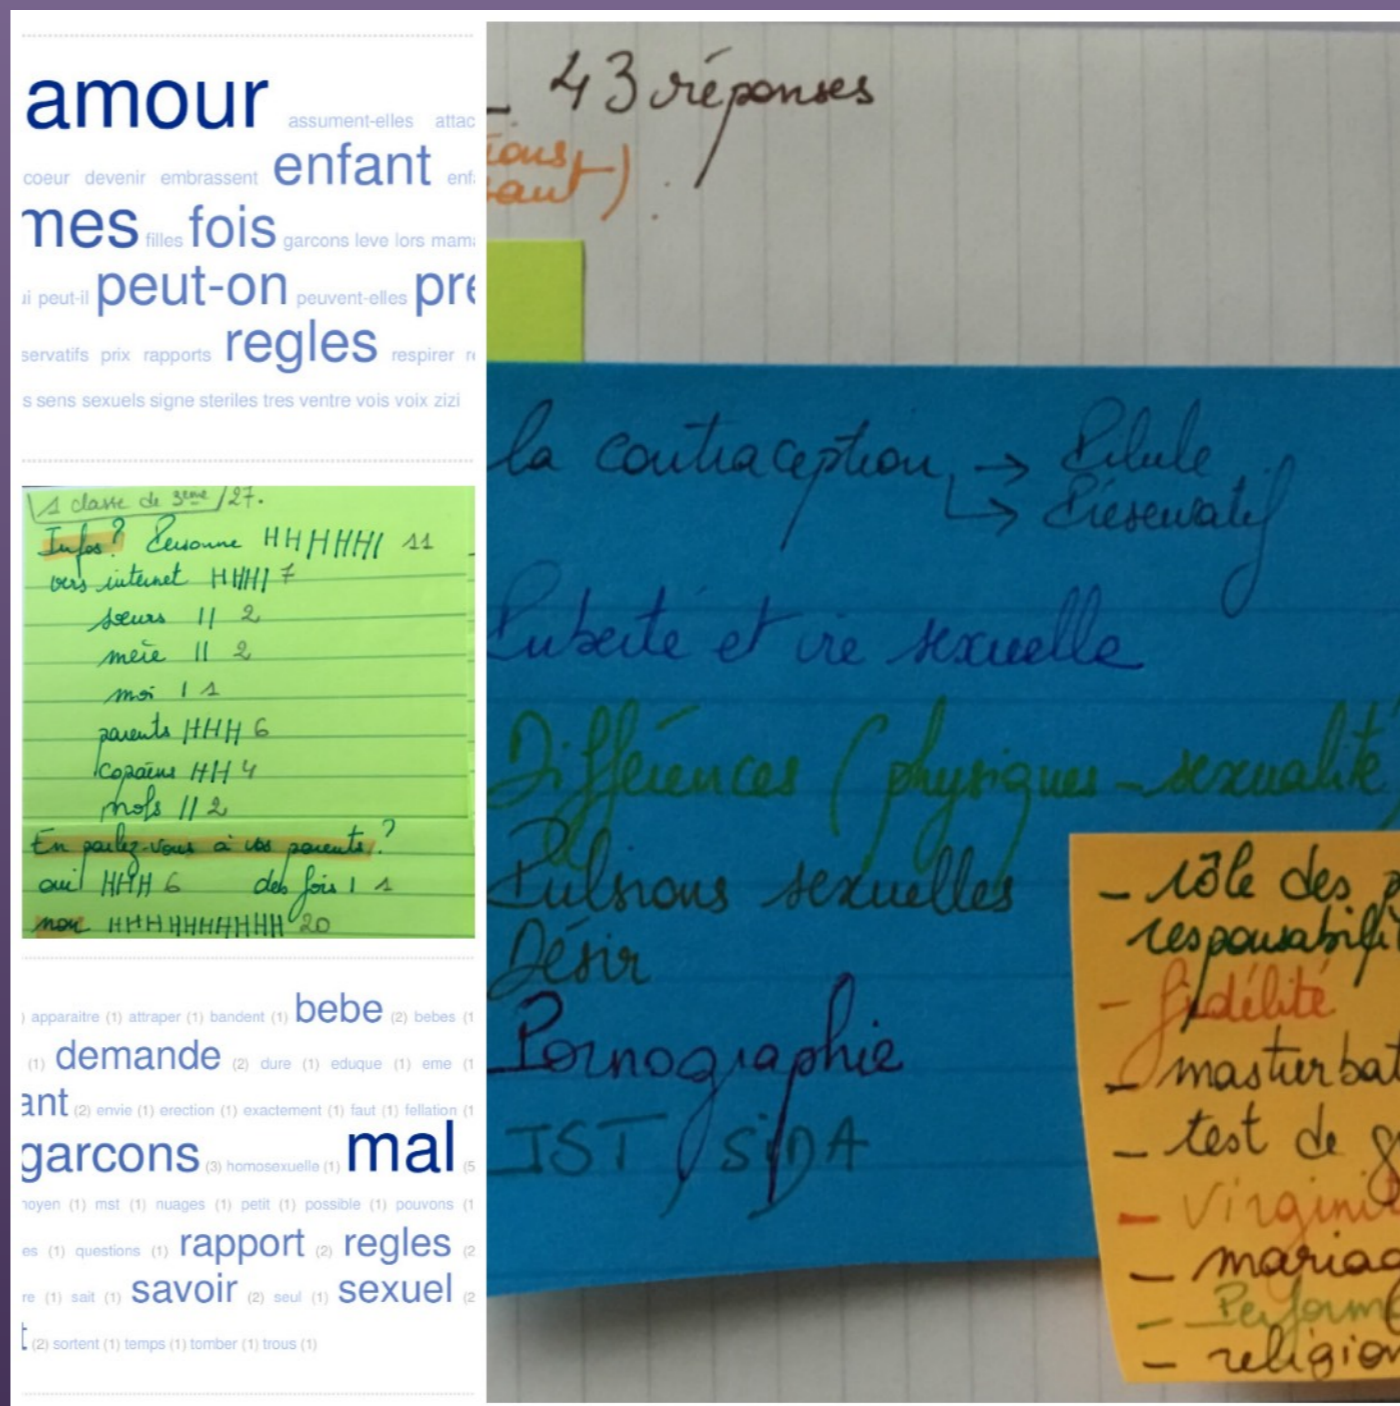 amour assument-elles attac
coeur devenir embrassent enfant enf
mes filles fois garcons leve lors mam
peut-il peut-on peuvent-elles pre
servatifs prix rapports regles respirer
s sens sexuels signe steriles tres ventre vois voix zizi
1 classe de 3ème /27.
Infos? Personne 11
vers internet 7
soeurs || 2
mère || 2
moi | 1
parents 6
copains 4
profs || 2
En parlez-vous à vos parents?
oui 6 des fois | 1
non 20
) apparaitre (1) attraper (1) bandent (1) bebe (2) bebes (1
(1) demande (2) dure (1) eduque (1) eme (1
ant (2) envie (1) erection (1) exactement (1) faut (1) fellation (1
garcons (3) homosexuelle (1) mal (5
noyen (1) mst (1) nuages (1) petit (1) possible (1) pouvons (1
es (1) questions (1) rapport (2) regles (2
re (1) sait (1) savoir (2) seul (1) sexuel (2
t (2) sortent (1) temps (1) tomber (1) trous (1)
- 43 réponses
la contraception → Pilule
↳ Préservatif
Puberté et vie sexuelle
Différences (physiques - sexualité
Pulsions sexuelles
Désir
Pornographie
IST / SIDA
- rôle des p
responsabili
- fidélité
- masturbat
- test de g
- Virginit
- mariag
- Perform
- religion